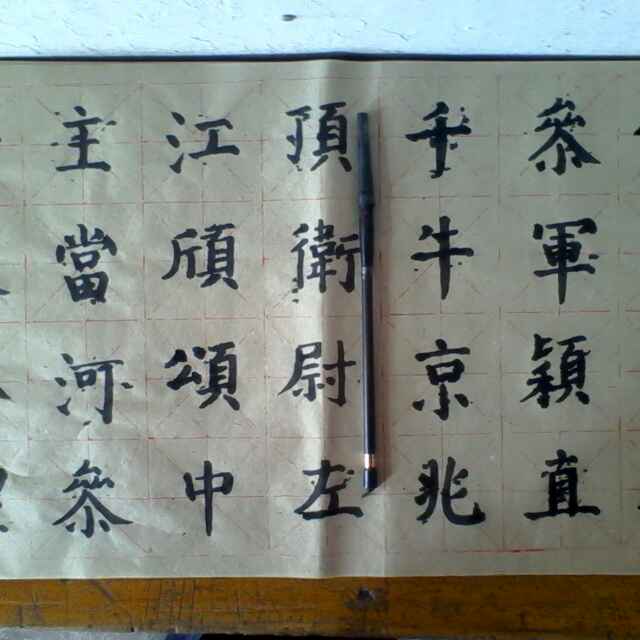 參軍穎直
千牛京兆
頂衛尉左
江頎頌中
主當河參